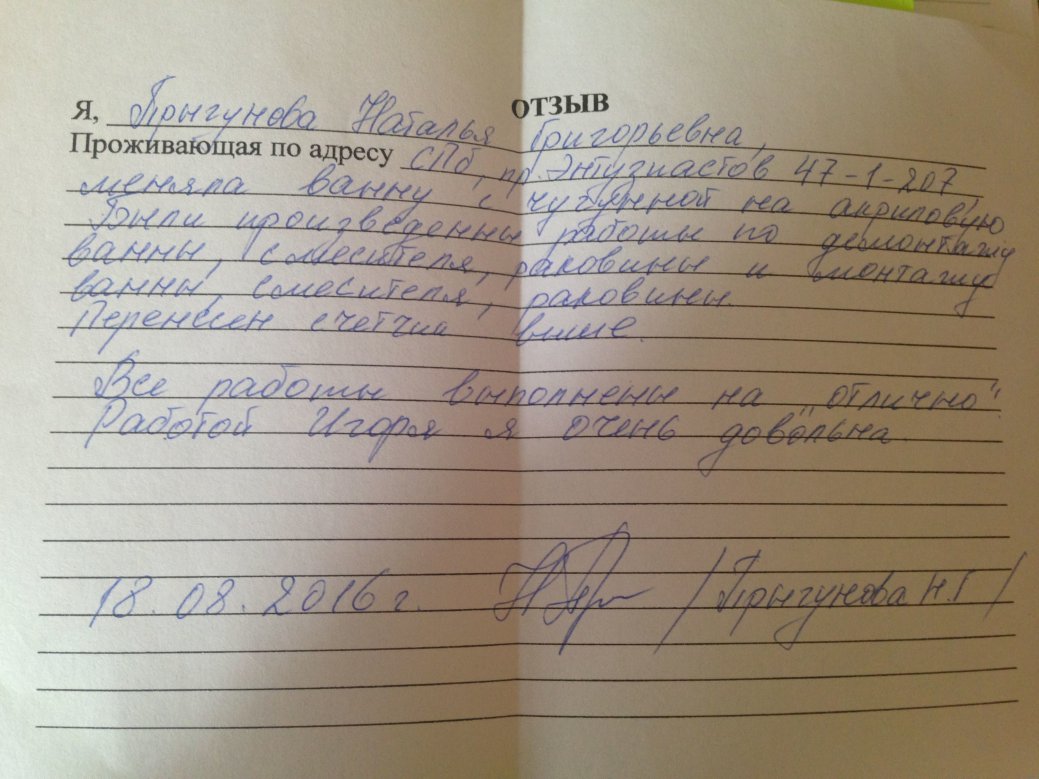 ОТЗЫВ
Я, Прыгунова Наталья Григорьевна,
Проживающая по адресу СПб, пр. Энтузиастов 47-1-207,
меняла ванну с чугунной на акриловую
Были произведенны работы по демонтажу
ванны, смесителя, раковины и монтажу
ванны, смесителя, раковины.
Перенесен счетчик выше.
Все работы выполнены на "отлично".
Работой Игоря я очень довольна
18.08.2016 г. /Прыгунова Н.Г/